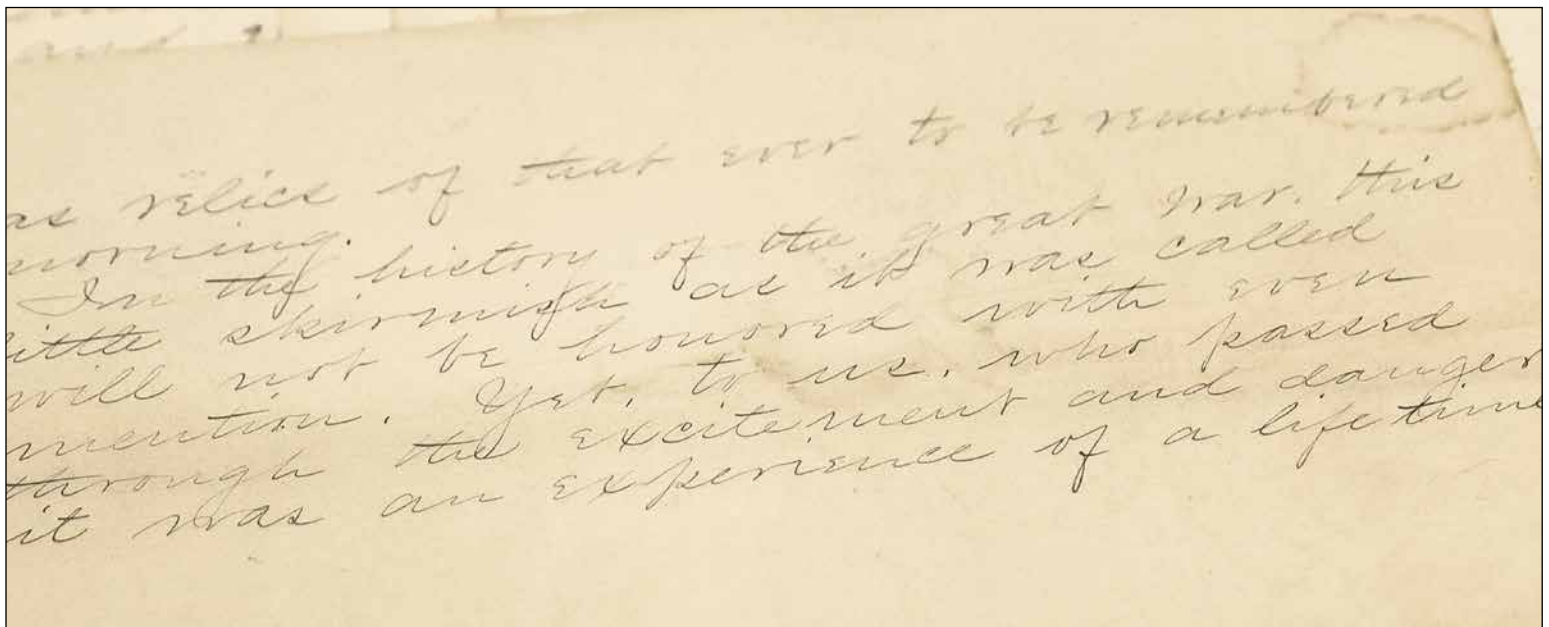 and
as relics of that ever to be remembered
morning.
In the history of the great war, this
little skirmish as it was called
will not be honored with even
mention. Yet, to us, who passed
through the excitement and danger
it was an experience of a life time